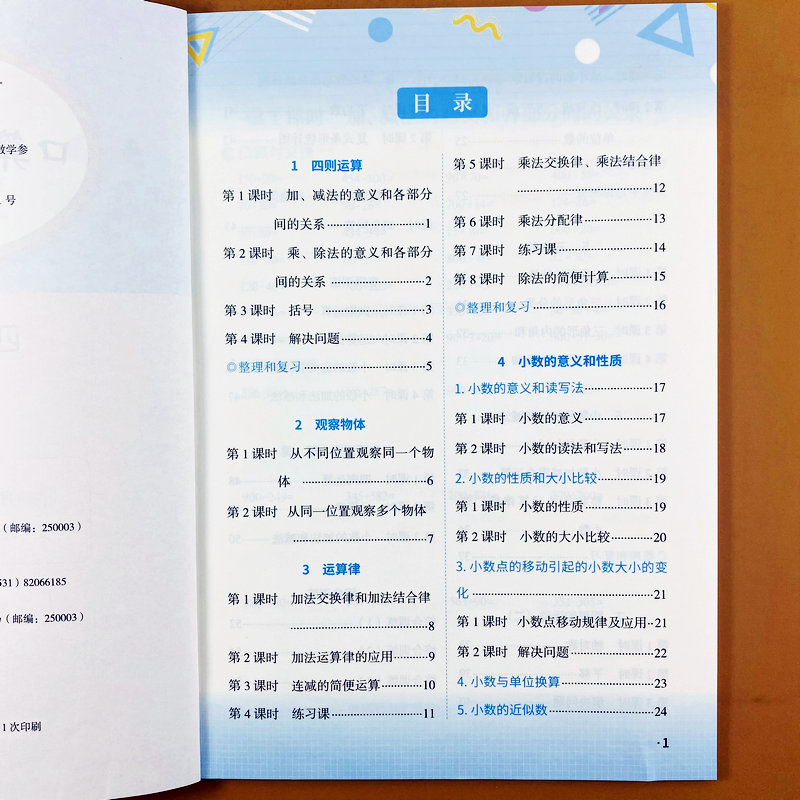 数学参
号
（邮编：250003）
531）82066185
（邮编：250003）
1 次印刷
目 录
1 四则运算
第 1 课时 加、减法的意义和各部分
间的关系……………1
第 2 课时 乘、除法的意义和各部分
间的关系……………2
第 3 课时 括号……………3
第 4 课时 解决问题……………4
◎整理和复习……………5
2 观察物体
第 1 课时 从不同位置观察同一个物
体……………6
第 2 课时 从同一位置观察多个物体
……………7
3 运算律
第 1 课时 加法交换律和加法结合律
……………8
第 2 课时 加法运算律的应用……………9
第 3 课时 连减的简便运算……………10
第 4 课时 练习课……………11
第 5 课时 乘法交换律、乘法结合律
……………12
第 6 课时 乘法分配律……………13
第 7 课时 练习课……………14
第 8 课时 除法的简便计算……………15
◎整理和复习……………16
4 小数的意义和性质
1. 小数的意义和读写法……………17
第 1 课时 小数的意义……………17
第 2 课时 小数的读法和写法……………18
2. 小数的性质和大小比较……………19
第 1 课时 小数的性质……………19
第 2 课时 小数的大小比较……………20
3. 小数点的移动引起的小数大小的变
化……………21
第 1 课时 小数点移动规律及应用…21
第 2 课时 解决问题……………22
4. 小数与单位换算……………23
5. 小数的近似数……………24
·1